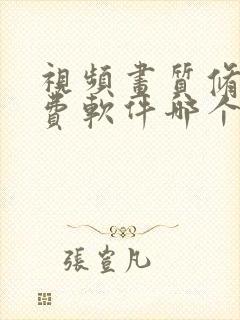 視頻畫質修
費軟件哪个
張萱凡